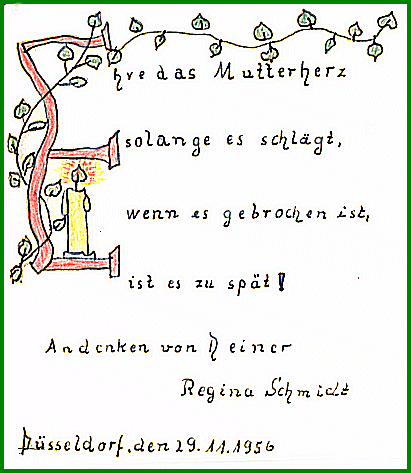 Ehre das Mutterherz
solange es schlägt,
wenn es gebrochen ist,
ist es zu spät!
Andenken von Deiner
Regina Schmidt
Düsseldorf, den 29.11.1956